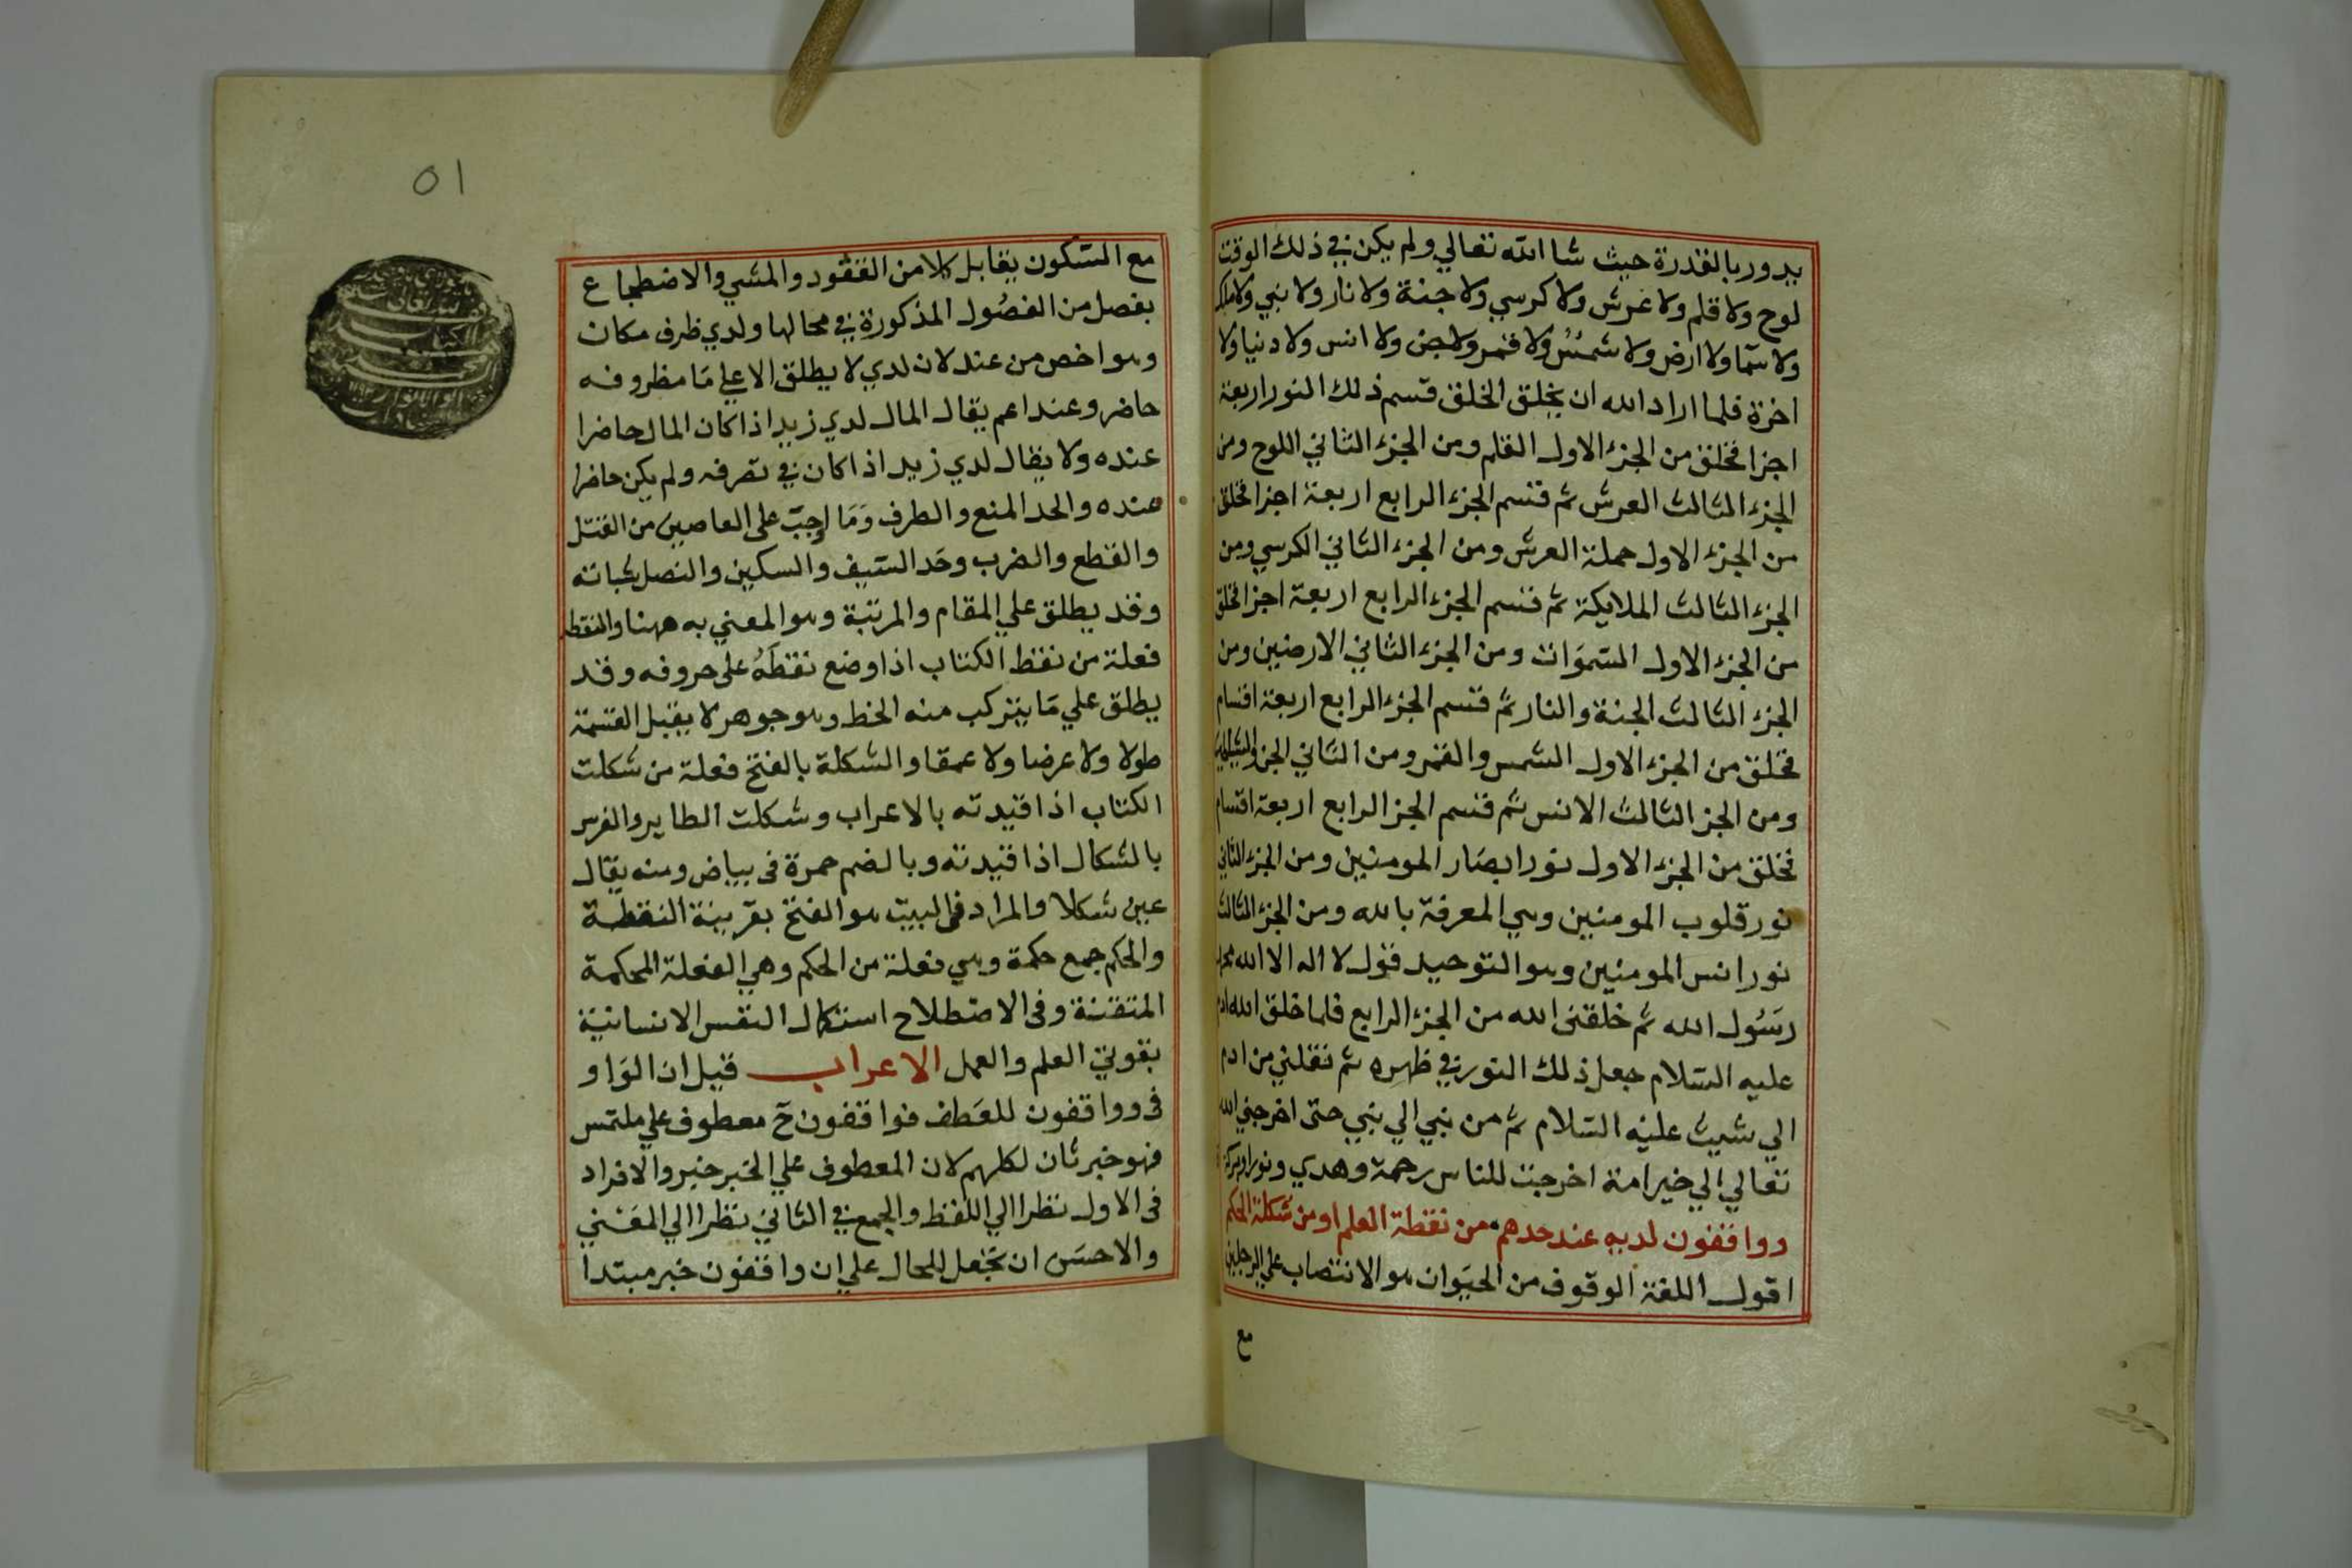 يدور بالقدرة حيث شا الله تعالي ولم يكن في ذلك الوقت
لوح ولا قلم ولا عرش ولا كرسي ولا جنة ولا نار ولا نبي ولا ملك
ولا سما ولا ارض ولا شمس ولا قمر ولا جن ولا انس ولا دنيا ولا
اخرة فلما اراد الله ان يخلق الخلق قسم ذلك النور اربعة
اجزا فخلق من الجزء الاول القلم ومن الجزء الثاني اللوح ومن
الجزء الثالث العرش ثم قسم الجزء الرابع اربعة اجزا فخلق
من الجزء الاول حملة العرش ومن الجزء الثاني الكرسي ومن
الجزء الثالث الملايكة ثم قسم الجزء الرابع اربعة اجزا فخلق
من الجزء الاول السموات ومن الجزء الثاني الارضين ومن
الجزء الثالث الجنة والنار ثم قسم الجزء الرابع اربعة اقسام
فخلق من الجزء الاول الشمس والقمر ومن الثاني الجن والشياطين
ومن الجز الثالث الانس ثم قسم الجز الرابع اربعة اقسام
فخلق من الجزء الاول نور ابصار المومنين ومن الجزء الثاني
نور قلوب المومنين وهي المعرفة بالله ومن الجزء الثالث
نور انس المومنين وهو التوحيد قول لا اله الا الله محمد
رسول الله ثم خلقني الله من الجزء الرابع فلما خلق الله ادم
عليه السلام جعل ذلك النور في ظهره ثم نقلني من ادم
الي شيث عليه السلام ثم من نبي الي نبي حتى اخرجني الله
تعالي الي خير امة اخرجت للناس رحمة وهدي ونورا وبركة
وواقفون لديه عند حدهم من نقطة العلم او من شكلة الحكم
اقول اللغة الوقوف من الحيوان هو الانتصاب علي الرجلين
مع
٥١
مع السكون يقابل كلا من القعود والمشي والاضطجاع
بفصل من الفصول المذكورة في محالها ولدي ظرف مكان
وهو اخص من عند لان لدي لا يطلق الا علي ما مظروفه
حاضر وعند اعم يقال المال لدي زيد اذا كان المال حاضرا
عنده ولا يقال لدي زيد اذا كان في تصرفه ولم يكن حاضرا
عنده والحد المنع والطرف وما اوجب على العاصين من القتل
والقطع والضرب وحد السيف والسكين والنصل شباته
وقد يطلق علي المقام والمرتبة وهو المعني به ههنا والنقطة
فعلة من نقط الكتاب اذا وضع نقطه على حروفه وقد
يطلق علي ما يتركب منه الخط وهو جوهر لا يقبل القسمة
طولا ولا عرضا ولا عمقا والشكلة بالفتح فعلة من شكلت
الكتاب اذا قيدته بالاعراب وشكلت الطاير والفرس
بالشكال اذا قيدته وبالضم حمرة في بياض ومنه يقال
عين شكلا والمراد في البيت هو الفتح بقرينة النقطة
والحكم جمع حكمة وهي فعلة من الحكم وهي الفعلة المحكمة
المتقنة وفي الاصطلاح استكمال النفس الانسانية
بقوتي العلم والعمل الاعراب قيل ان الواو
في وواقفون للعطف فواقفون ح معطوف علي ملتمس
فهو خبر ثان لكلهم لان المعطوف علي الخبر خبر والافراد
في الاول نظرا الي اللفظ والجمع في الثاني نظرا الي المعني
والاحسن ان تجعل للحال علي ان واقفون خبر مبتدا